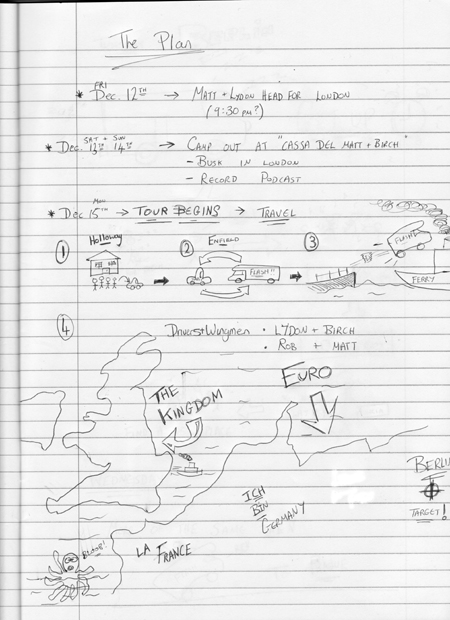 The Plan
FRI
* Dec. 12TH → MATT + LYDON HEAD FOR LONDON
(4:30 pm?)
SAT + SUN
* Dec. 13TH 14TH → CAMP OUT AT "CASSA DEL MATT + BIRCH"
- BUSK IN LONDON
- RECORD PODCAST
MON
* Dec 15TH → TOUR BEGINS → TRAVEL
1 Holloway 2 ENFIELD 3
FLASH!!
FLASH!!
FERRY
4 Drivers + Wingmen • LYDON + BIRCH
• ROB + MATT
THE KINGDOM
EURO
BERLIN
TARGET!
ICH
BIN
GERMANY
LA FRANCE